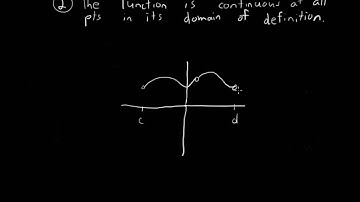 ② The function is continuous at all
pts in its domain of definition.
c d